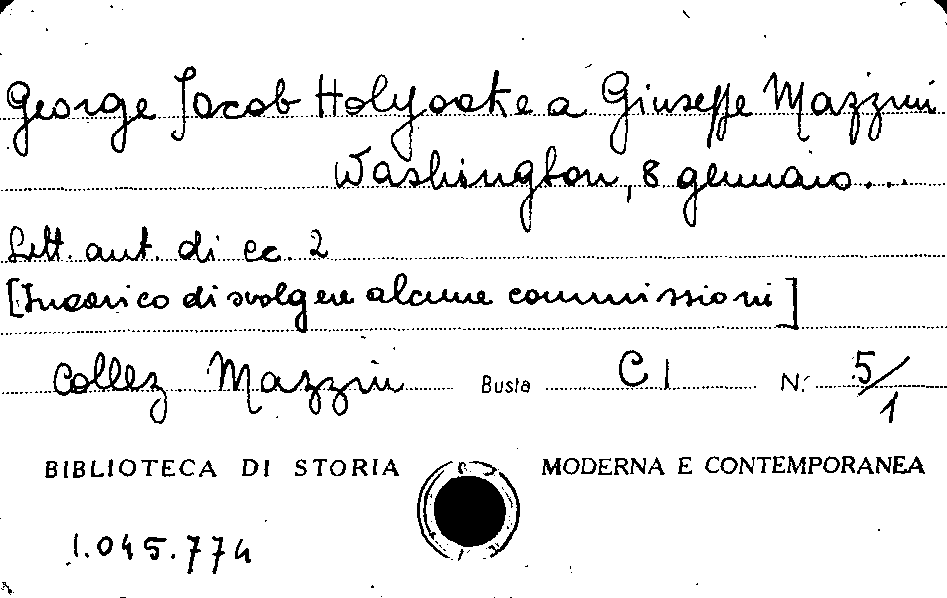 George Jacob Holyoake a Giuseppe Mazzini
Washington, 8 gennaio...
Lett. aut. di cc. 2
[Incarico di svolgere alcune commissioni]
Collez Mazzini Busta C I N. 5/1
BIBLIOTECA DI STORIA MODERNA E CONTEMPORANEA
1.045.774